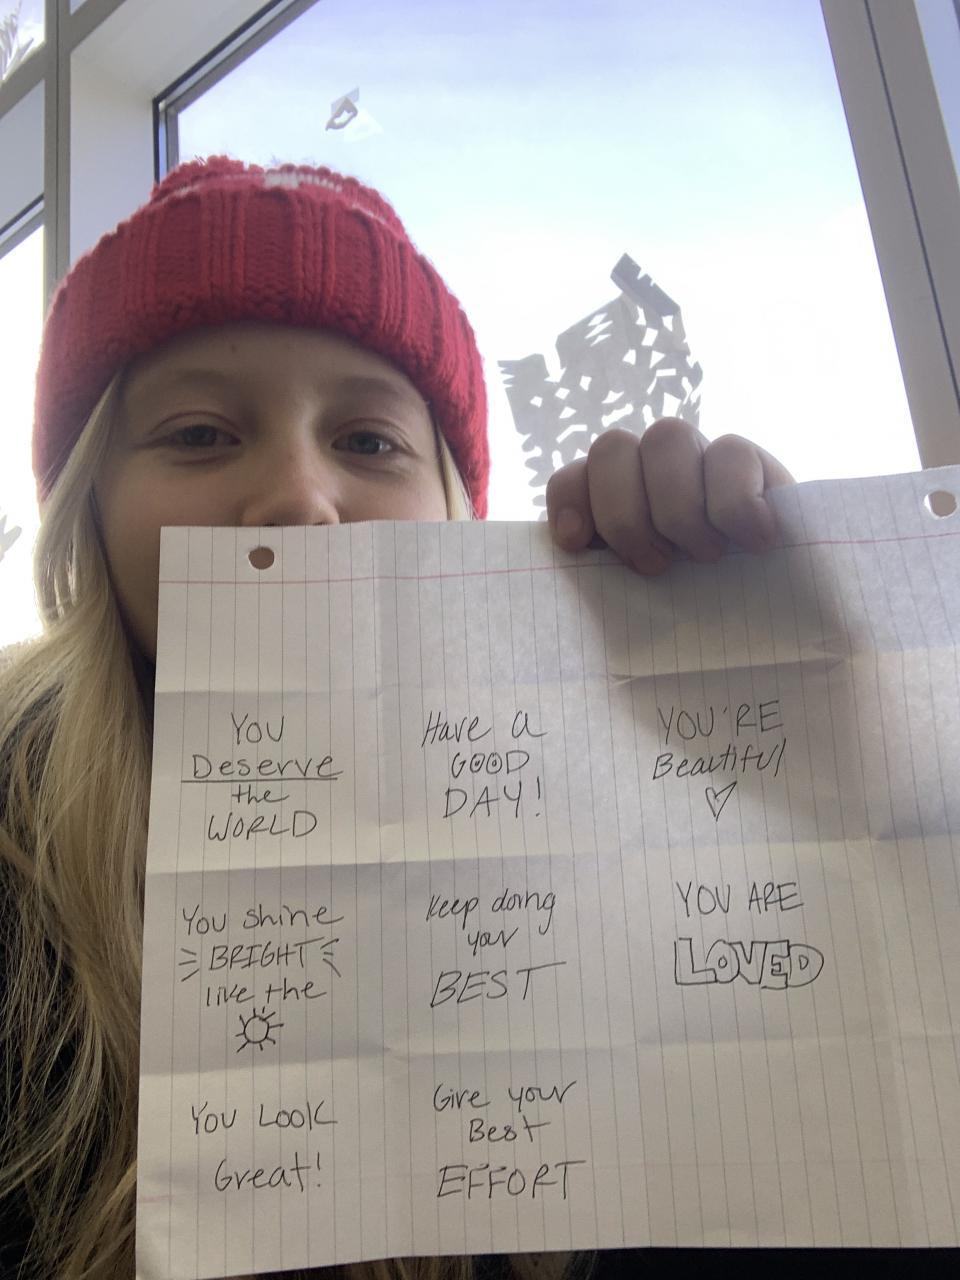 You
Deserve
the
WORLD
Have a
GOOD
DAY!
YOU'RE
Beautiful
You shine
BRIGHT
like the
Keep doing
your
BEST
YOU ARE
LOVED
You Look
Great!
Give your
Best
EFFORT